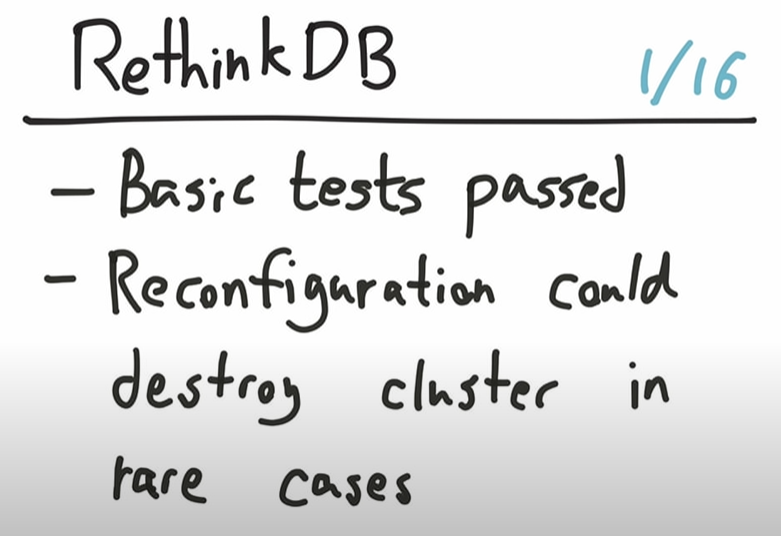 RethinkDB 1/16
- Basic tests passed
- Reconfiguration could
destroy cluster in
rare cases